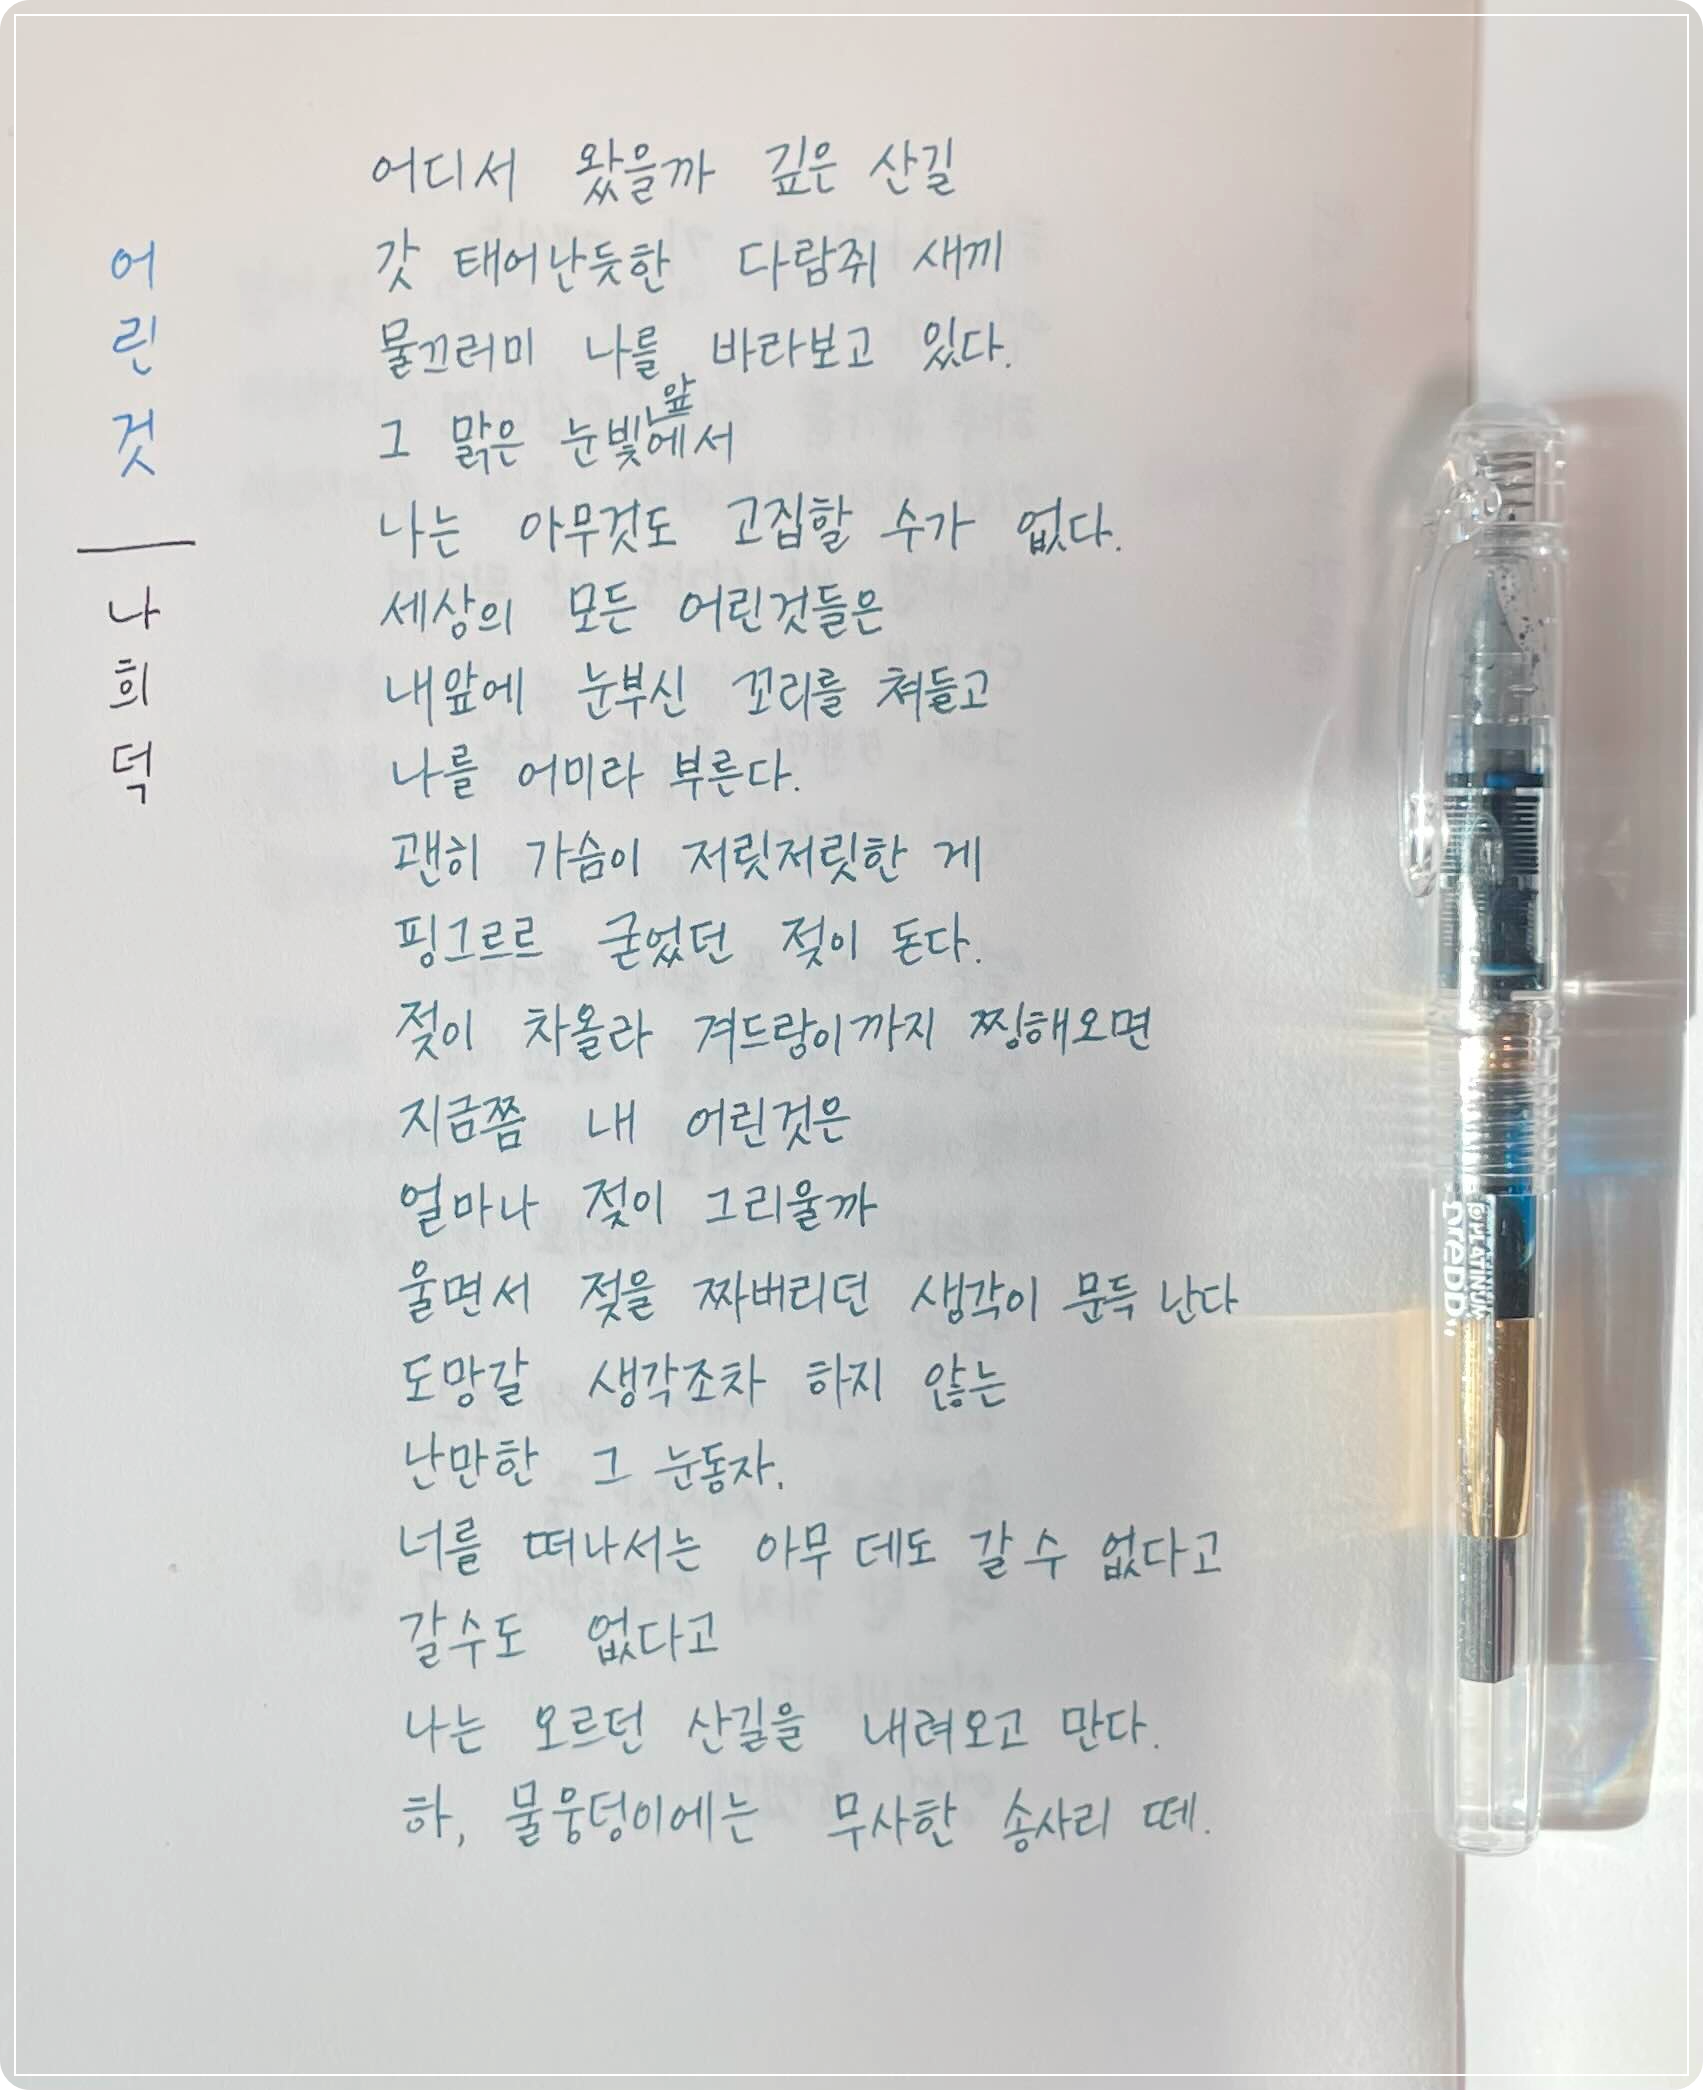 어린것
나희덕
어디서 왔을까 깊은 산길
갓 태어난듯한 다람쥐 새끼
물끄러미 나를 바라보고 있다.
그 맑은 눈빛앞에서
나는 아무것도 고집할 수가 없다.
세상의 모든 어린것들은
내앞에 눈부신 꼬리를 쳐들고
나를 어미라 부른다.
괜히 가슴이 저릿저릿한 게
핑그르르 굳었던 젖이 돈다.
젖이 차올라 겨드랑이까지 찡해오면
지금쯤 내 어린것은
얼마나 젖이 그리울까
울면서 젖을 짜버리던 생각이 문득 난다
도망갈 생각조차 하지 않는
난만한 그 눈동자.
너를 떠나서는 아무 데도 갈 수 없다고
갈수도 없다고
나는 오르던 산길을 내려오고 만다.
하, 물웅덩이에는 무사한 송사리 떼.
PLATINUM
preppy